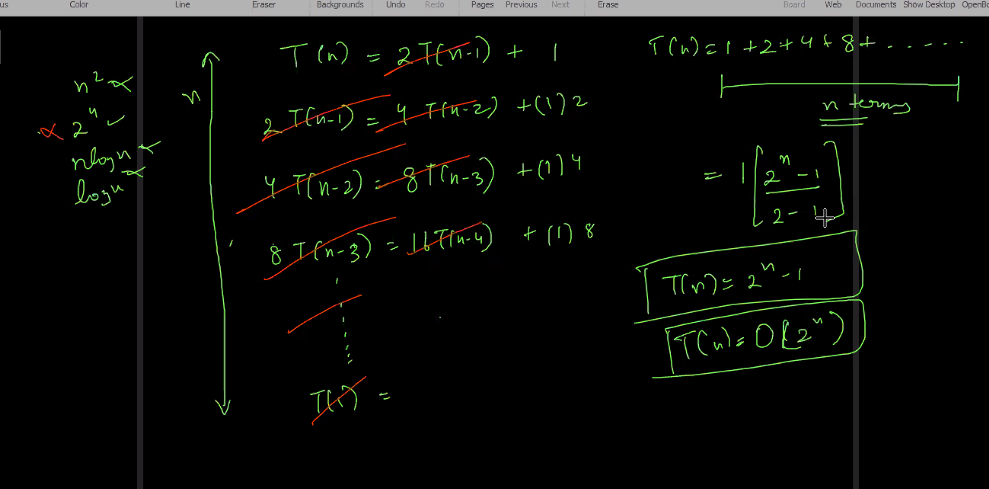 us Color Line Eraser Backgrounds Undo Redo Pages Previous Next Erase Board Web Documents Show Desktop OpenBo
n² ∝
∝ 2ⁿ ✓
nlogn ∝
logn ∝
n
T(n) = 2T(n-1) + 1
2T(n-1) = 4T(n-2) + (1) 2
4T(n-2) = 8T(n-3) + (1) 4
8T(n-3) = 16T(n-4) + (1) 8
T(1) =
T(n) = 1 + 2 + 4 + 8 + ......
n terms
= 1 [ 2ⁿ - 1
2 - 1 ]
T(n) = 2ⁿ - 1
T(n) = O(2ⁿ)